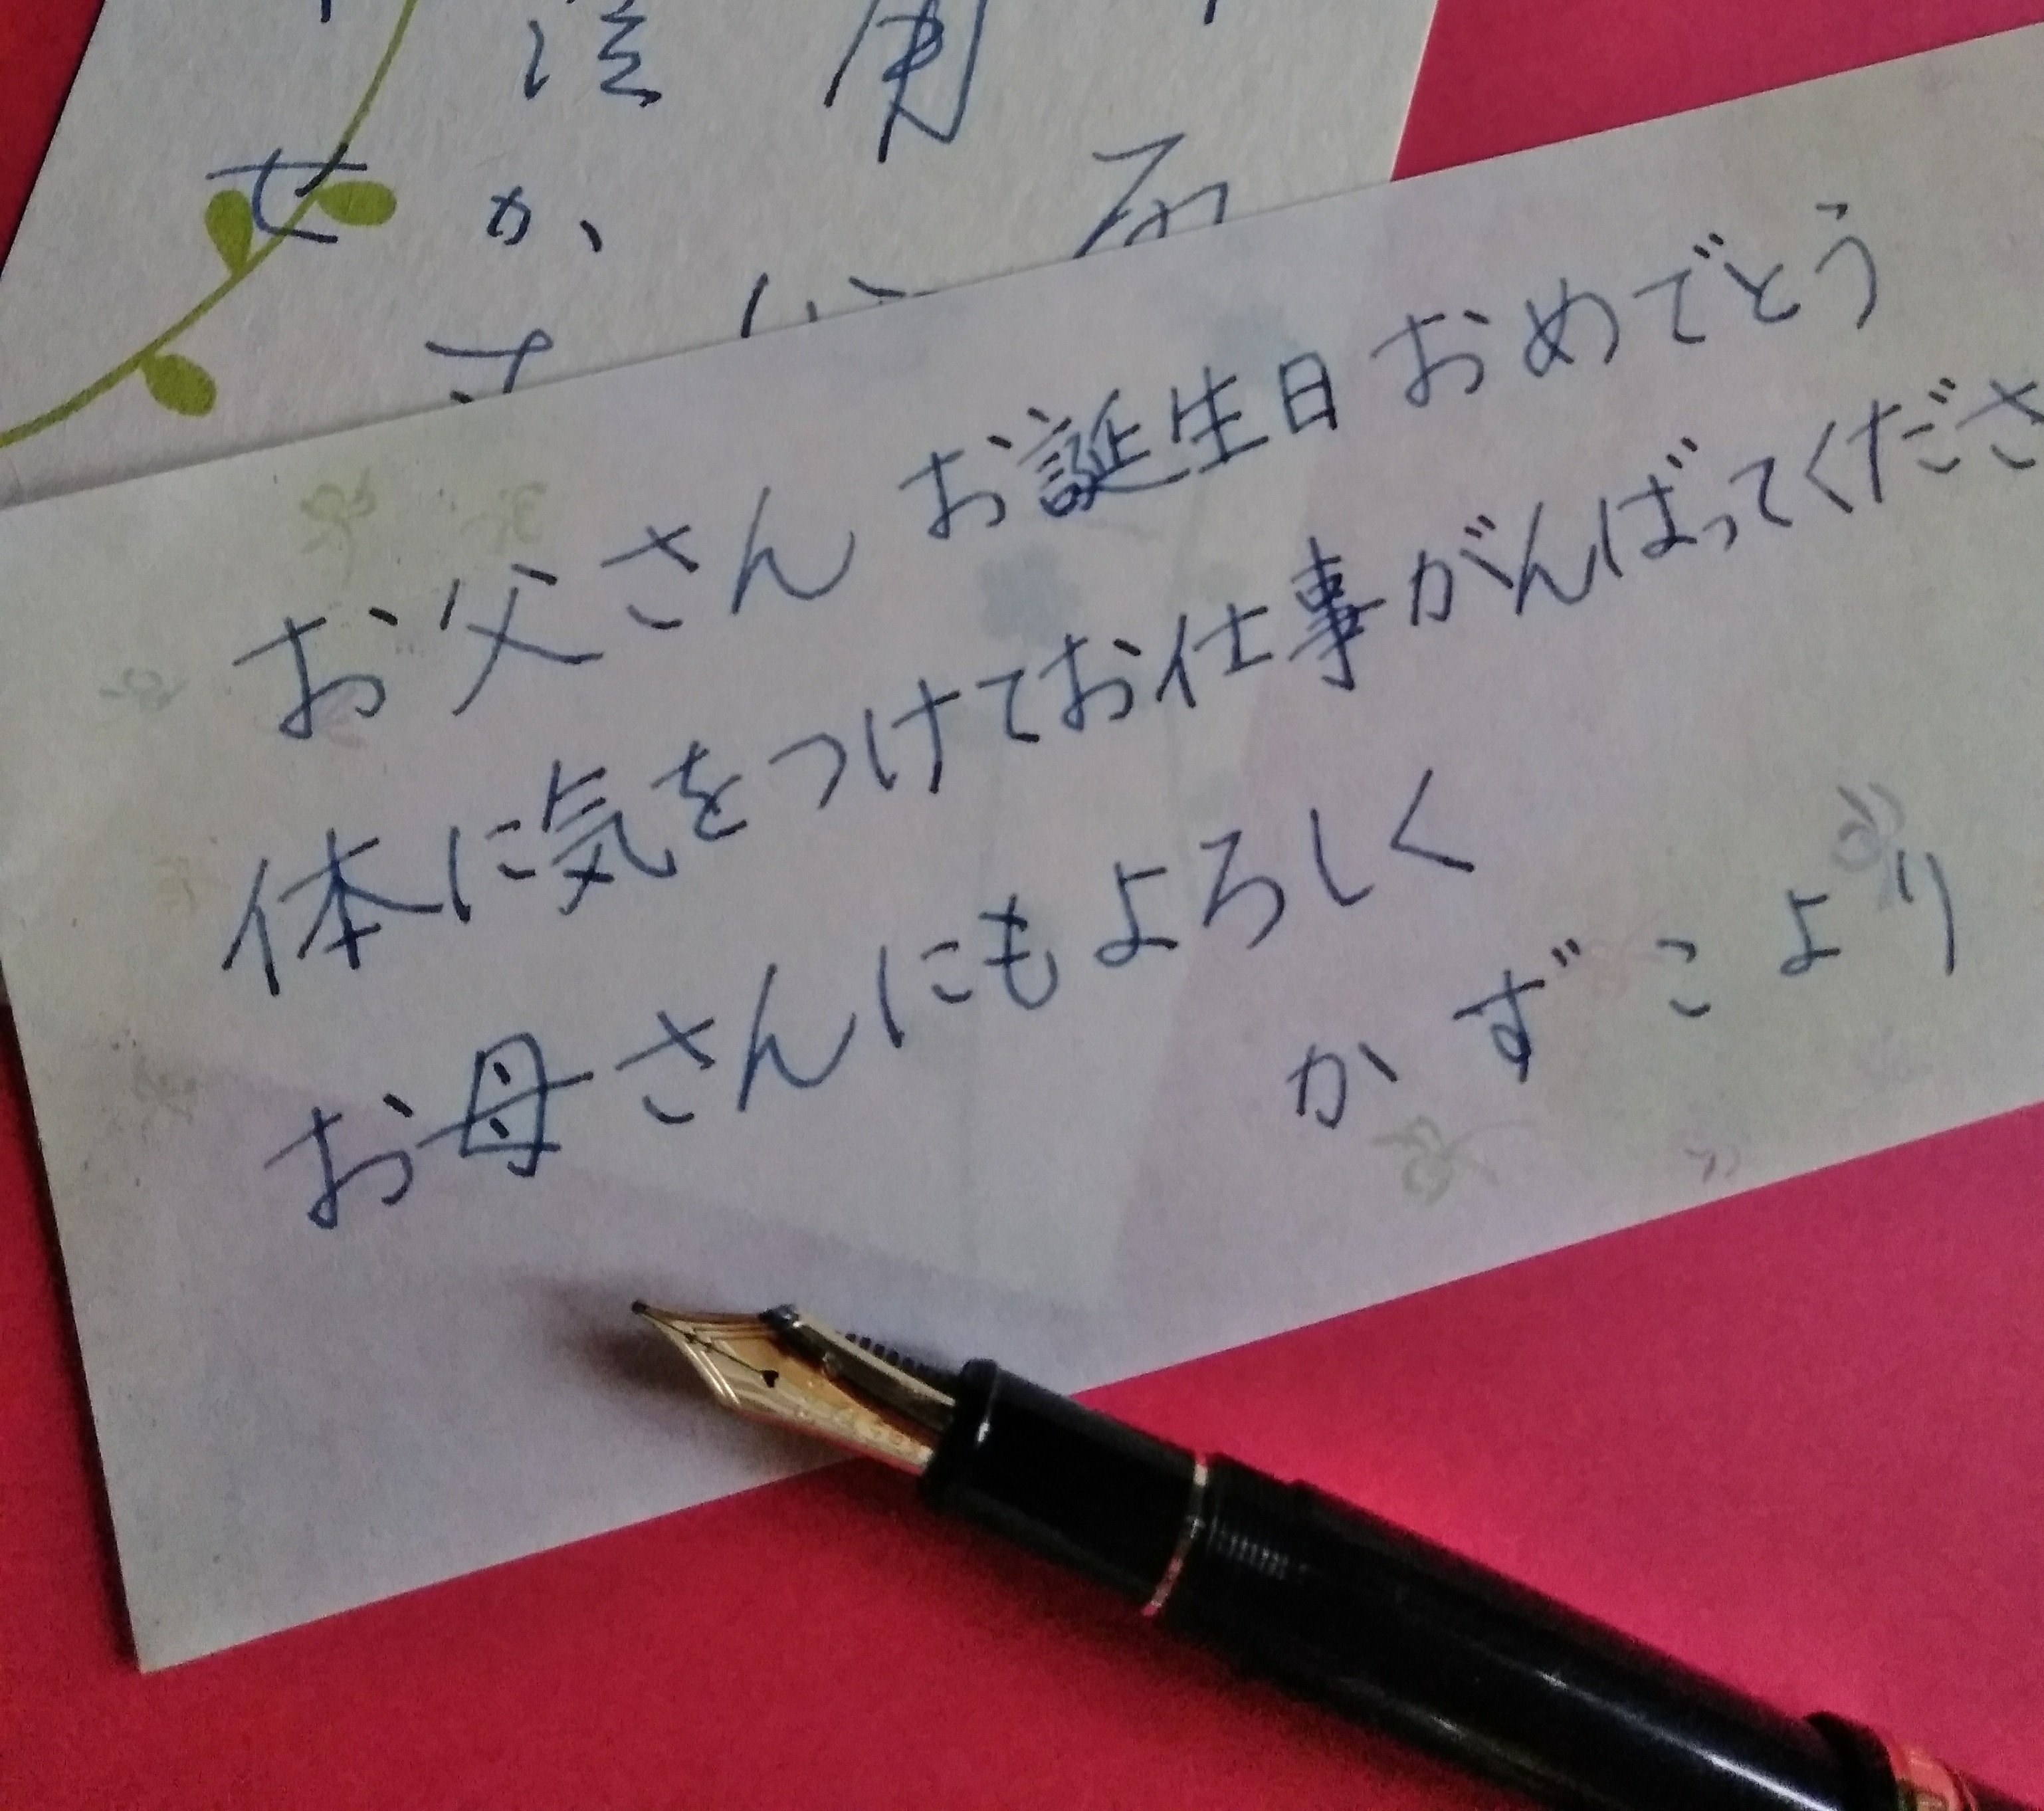 お父さん お誕生日おめでとう
体に気をつけてお仕事がんばってくださ
お母さんにもよろしく
かずこより